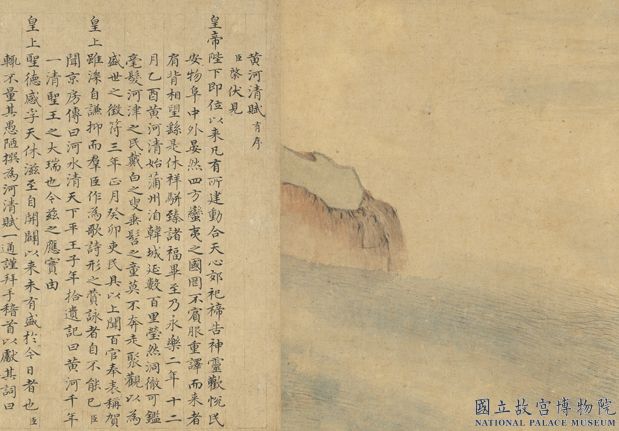 黄河清賦有序
臣棨伏見
皇帝陛下即位以来凡有所建動合天心郊祀禘告神靈歡悦民
安物阜中外晏然四方蠻夷之國罔不賓服重譯而来者
肩背相望繇是休祥駢臻諸福畢至乃永樂二年十二
月乙酉黄河清始蒲州泊韓城延數百里瑩然洞徹可鑑
毫髮河津之民戴白之叟垂髫之童莫不奔走聚觀以為
盛世之徴苻三年正月癸卯吏民具以上聞百官奉表稱賀
皇上雖深自謙抑而羣臣作為歌詩形之賛詠者自不能已臣
聞京房傳曰河水清天下平王子年拾遺記曰黄河千年
一清聖王之大瑞也今兹之應實由
皇上聖德感孚天休滋至自開闢以来未有盛於今日者也臣
輒不量其愚陋撰為河清賦一通謹拜手稽首以獻其詞曰
國立故宮博物院
NATIONAL PALACE MUSEUM